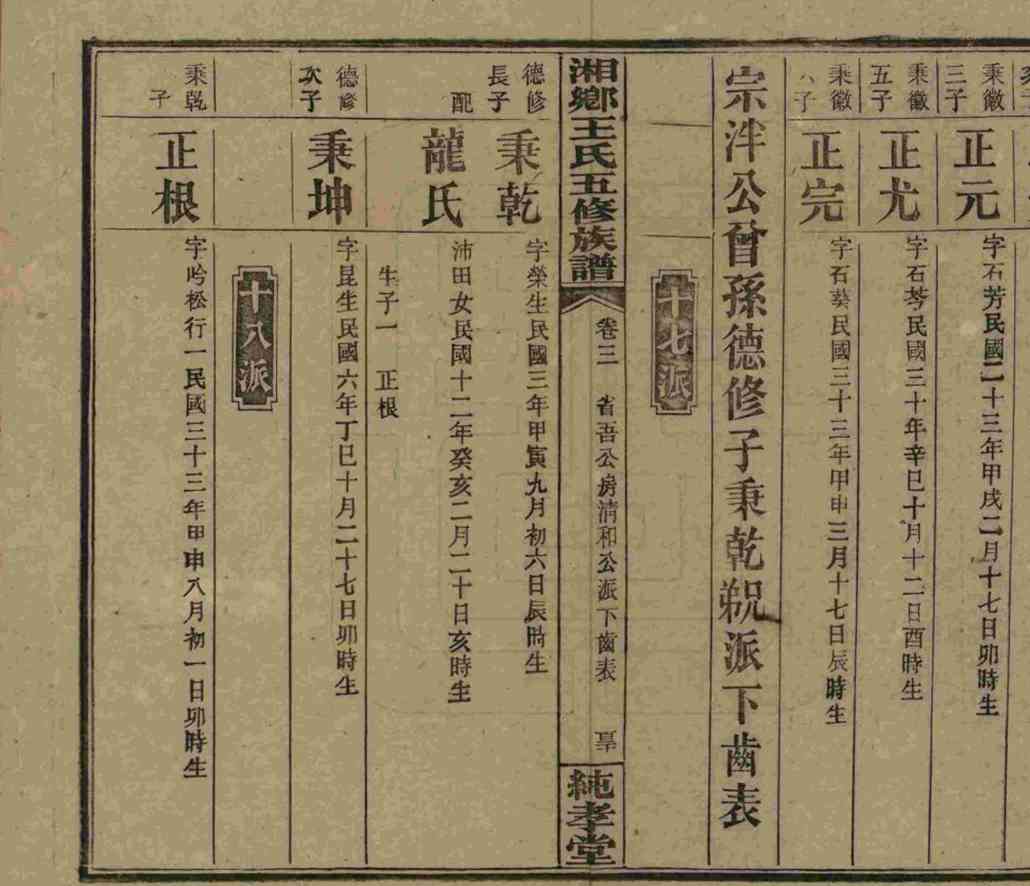 三子
秉徽
正元
字石芳民國二十三年甲戌二月十七日卯時生
秉徽
五子
正尤
字石芩民國三十年辛巳十月十二日酉時生
秉徽
子
正完
字石葵民國三十三年甲申三月十七日辰時生
宗泮公曾孫德修子秉乾派下齒表
十七派
湘鄉王氏五修族譜
卷三 省吾公房清和公派下齒表
純孝堂
德修
長子
秉乾
字榮生民國三年甲寅九月初六日辰時生
配
龍氏
沛田女民國十二年癸亥二月二十日亥時生
生子一 正根
德修
次子
秉坤
字昆生民國六年丁巳十月二十七日卯時生
十八派
秉乾
子
正根
字吟松行一民國三十三年甲申八月初一日卯時生